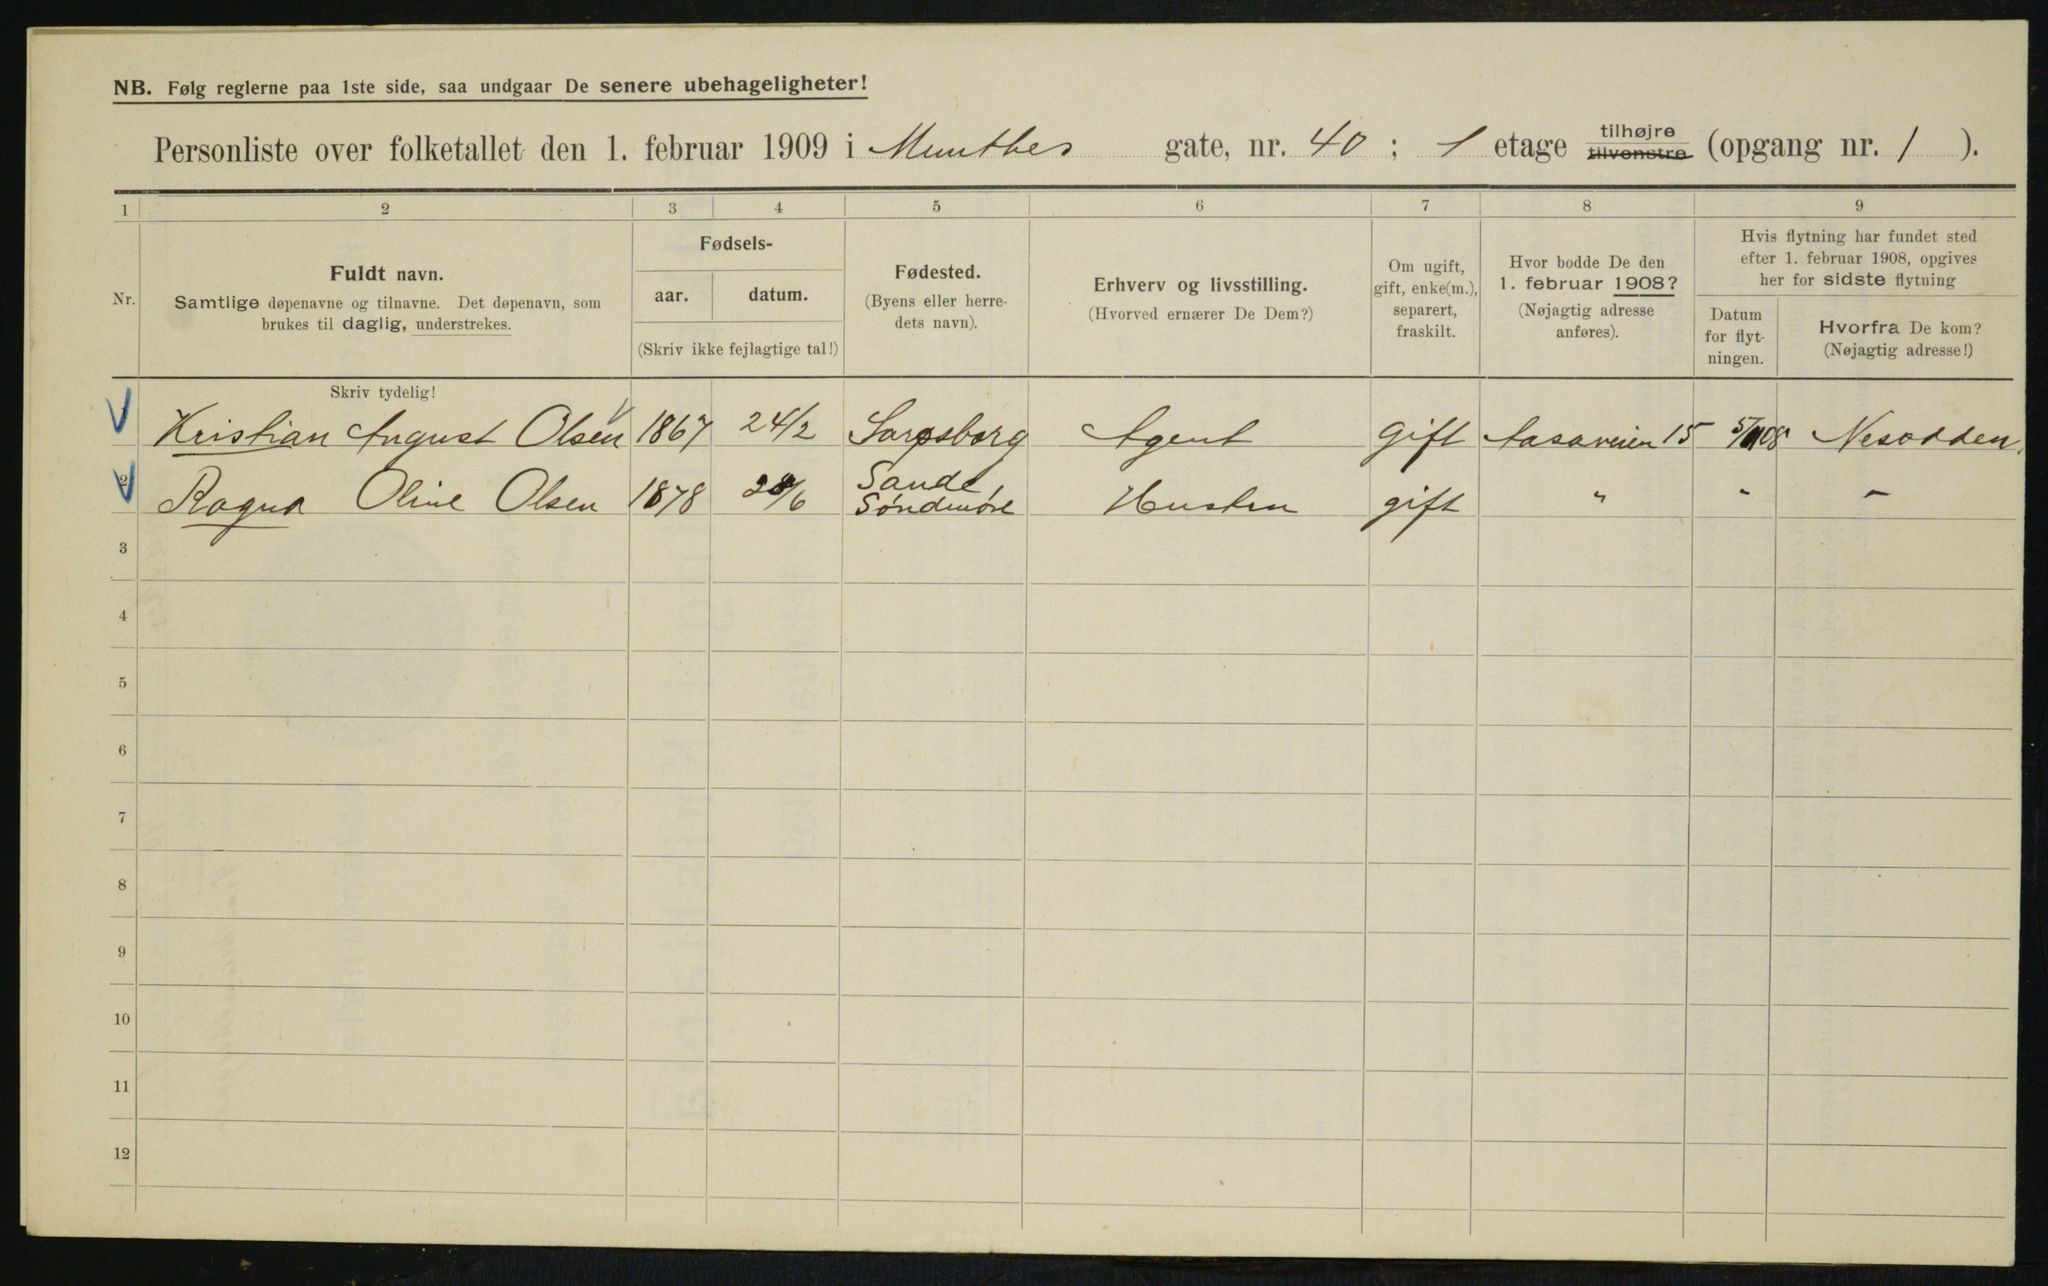 NB. Følg reglerne paa 1ste side, saa undgaar De senere ubehageligheter!
Personliste over folketallet den 1. februar 1909 i Munthes gate, nr. 40 ; 1 etage tilhøjre tilvenstre (opgang nr. 1 ).
1 2 3 4 5 6 7 8 9
Nr.
Fuldt navn.
Samtlige døpenavne og tilnavne. Det døpenavn, som
brukes til daglig, understrekes.
Fødsels-
aar. datum.
(Skriv ikke fejlagtige tal!)
Fødested.
(Byens eller herre-
dets navn).
Erhverv og livsstilling.
(Hvorved ernærer De Dem?)
Om ugift,
gift, enke(m.),
separert,
fraskilt.
Hvor bodde De den
1. februar 1908?
(Nøjagtig adresse
anføres).
Hvis flytning har fundet sted
efter 1. februar 1908, opgives
her for sidste flytning
Datum
for flyt-
ningen.
Hvorfra De kom?
(Nøjagtig adresse!)
Skriv tydelig!
1 Kristian August Olsen 1867 24/2 Sarpsborg Agent gift Aasaveien 15 08 Nesodden
2 Ragna Oline Olsen 1878 /6 Sande, Søndmøre Hustru gift " " "
3
4
5
6
7
8
9
10
11
12